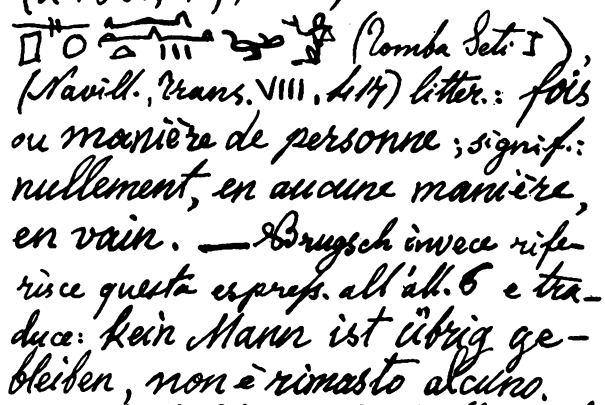 (Tomba Seti I),
(Navill., Trans. VIII, 417) litter.: fois
ou manière de personne; signif.:
nullement, en aucune manière,
en vain. — Brugsch invece rife-
risce questa espress. all'all. 6 e tra-
duce: kein Mann ist übrig ge-
blieben, non è rimasto alcuno.